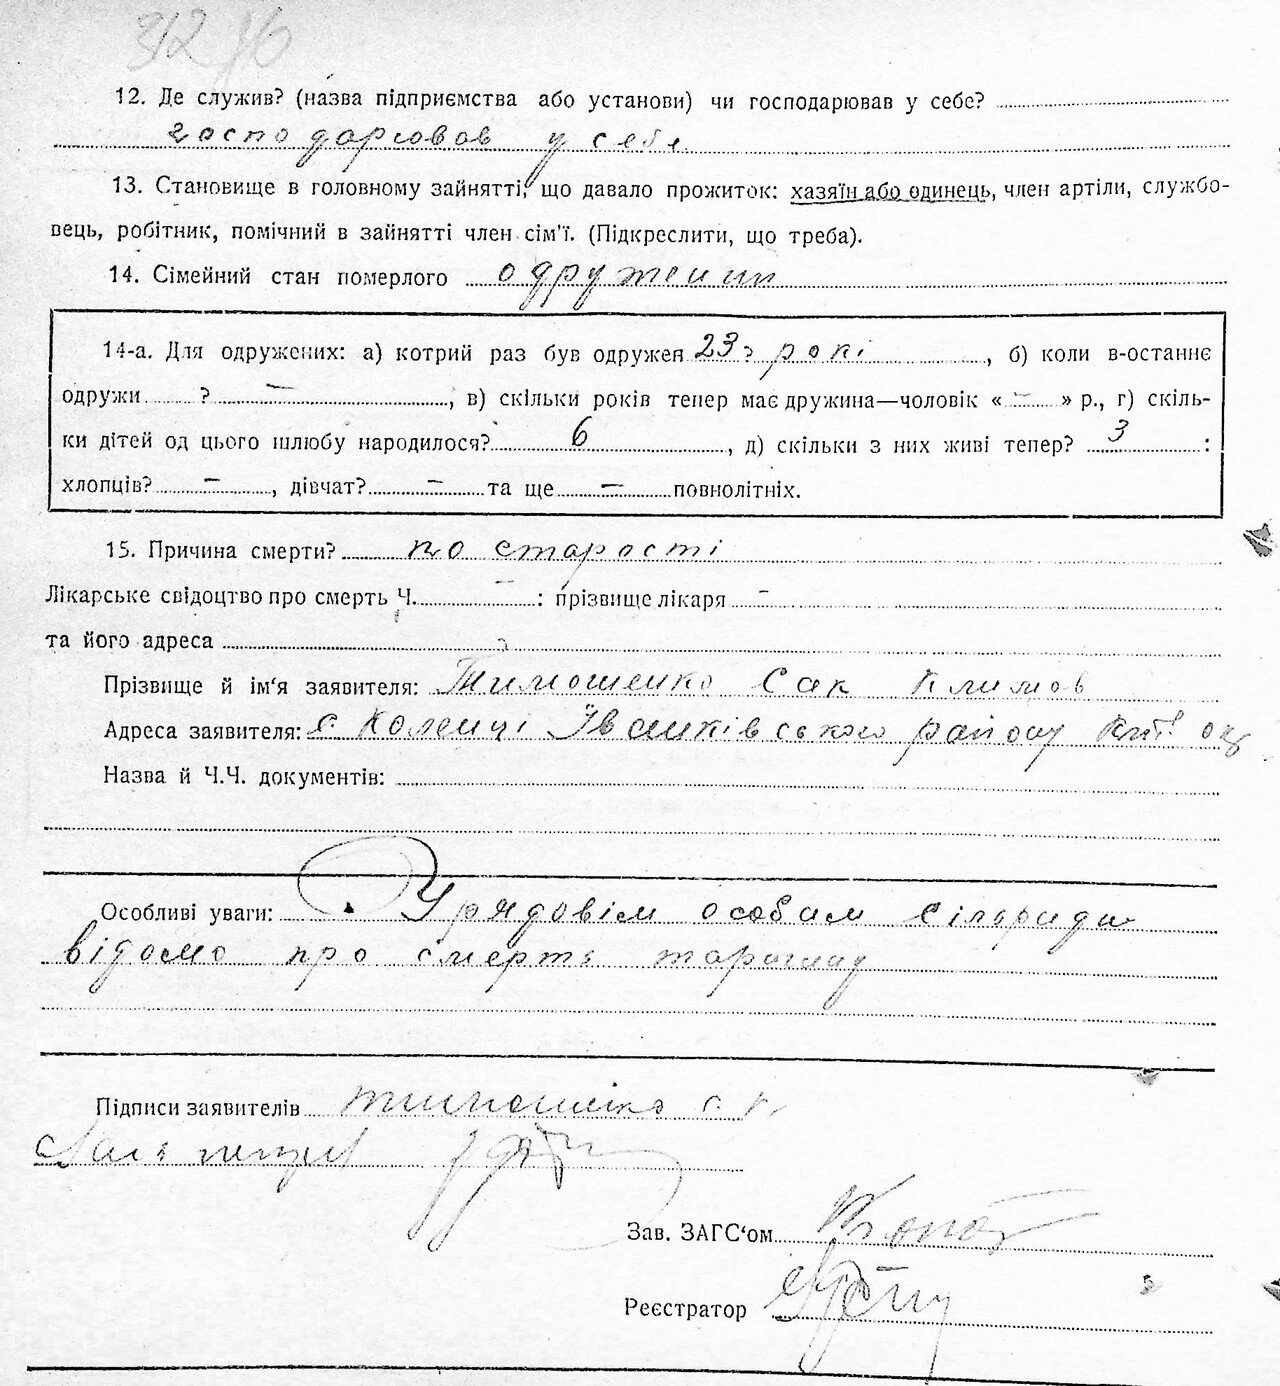 312
12. Де служив? (назва підприємства або установи) чи господарював у себе?
господарював у себе
13. Становище в головному зайнятті, що давало прожиток: хазяїн або одинець, член артіли, службо-
вець, робітник, помічний в зайнятті член сім'ї. (Підкреслити, що треба).
14. Сімейний стан померлого одружений
14-а. Для одружених: а) котрий раз був одружен 23 рокі, б) коли в-останнє
одружи ? —, в) скільки років тепер має дружина—чоловік « — » р., г) скіль-
ки дітей од цього шлюбу народилося? 6, д) скільки з них живі тепер? 3 :
хлопців? —, дівчат? — та ще — повнолітніх.
15. Причина смерти? по старості
Лікарське свідоцтво про смерть Ч. — : прізвище лікаря —
та його адреса
Прізвище й ім'я заявителя: Тимошенко Сак Климов
Адреса заявителя: с. Коленці Іванківського району
Назва й Ч.Ч. документів:
Особливі уваги: Урядовім особам сілоради
відомо про смерть
Підписи заявителів Тимошенко с. к.
Зав. ЗАГС'ом
Реєстратор